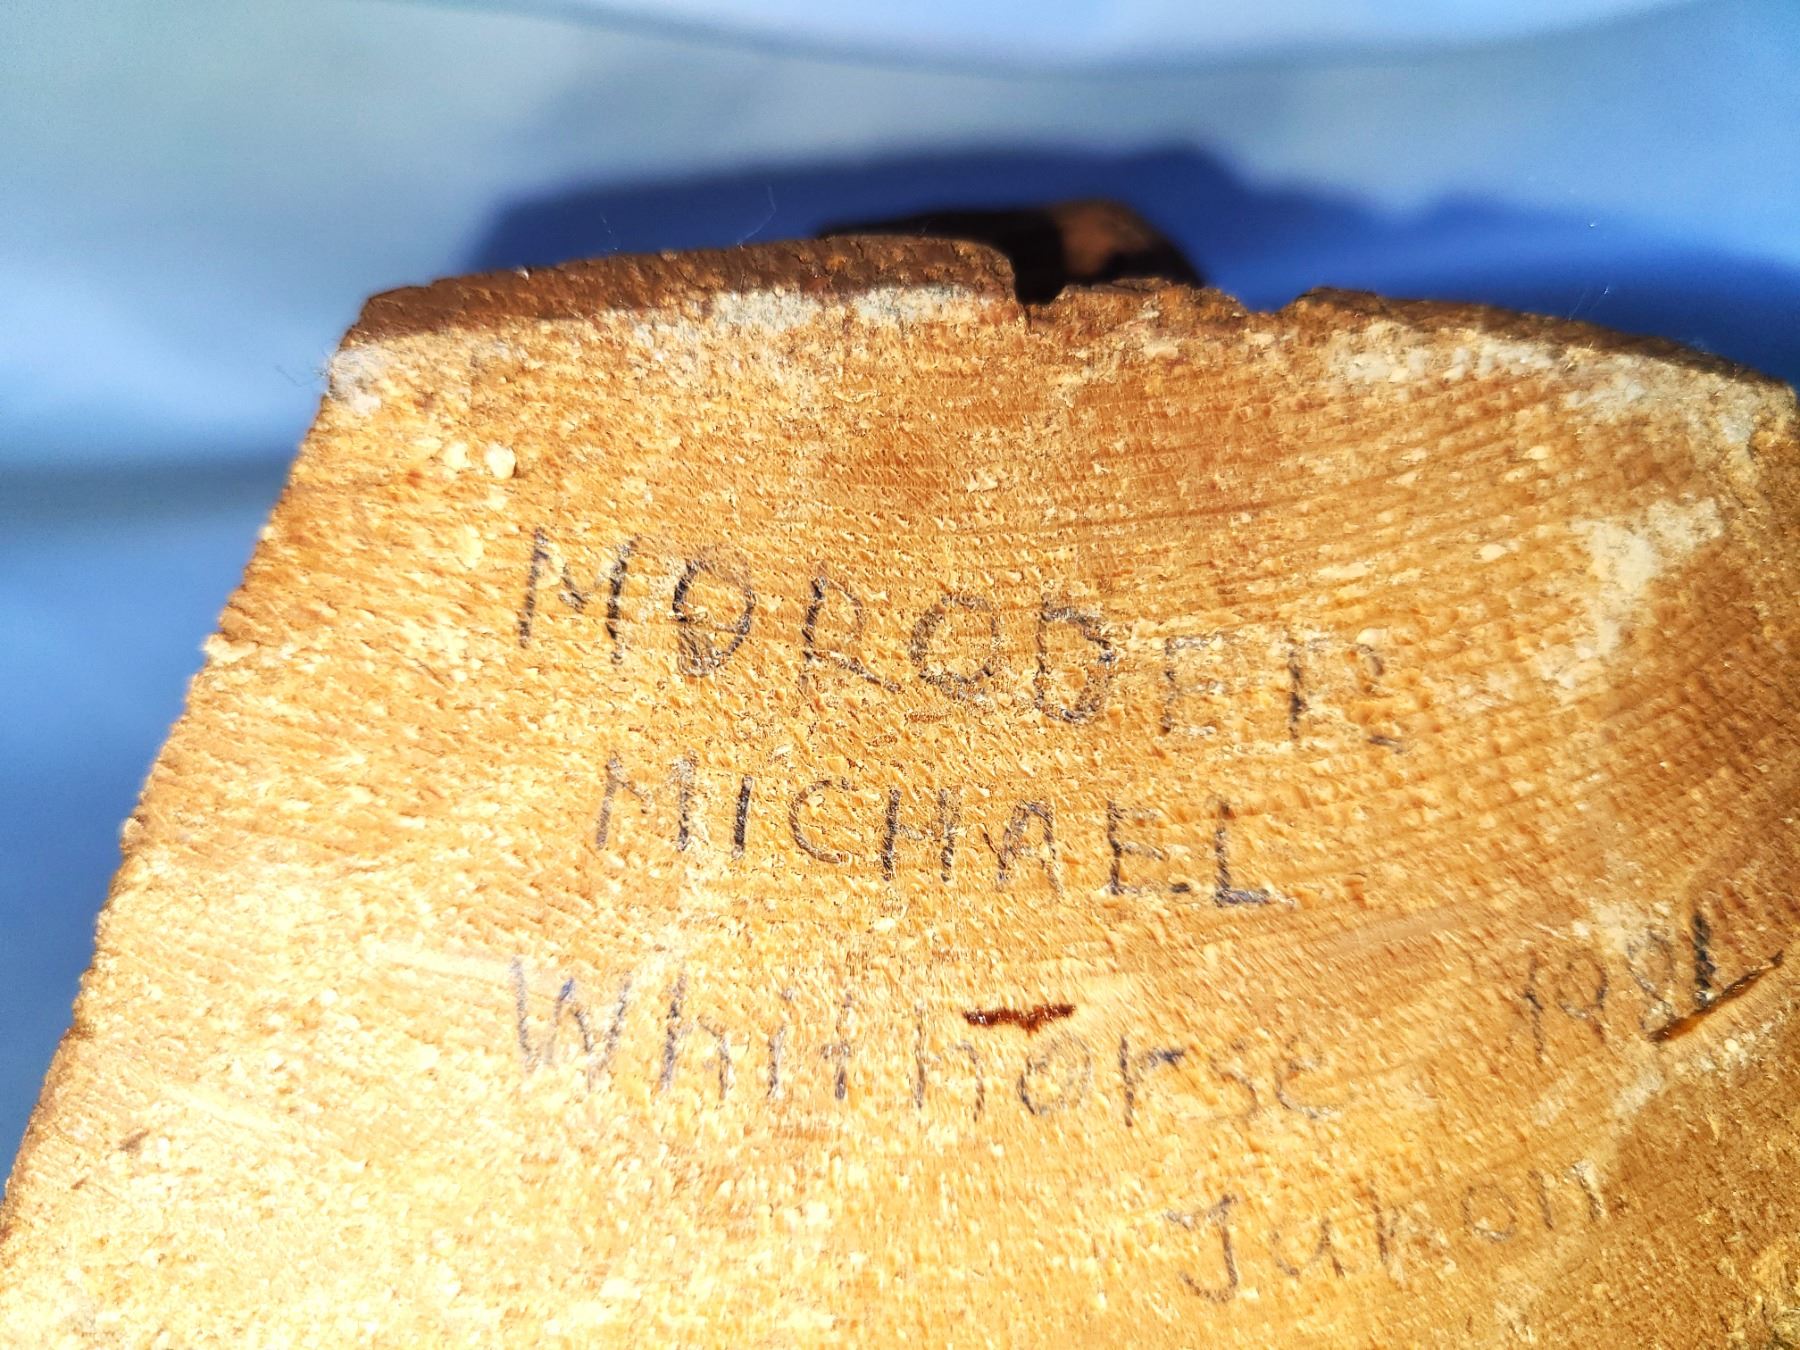 MORODER
MICHAEL
Whithorse 1981
Jukon